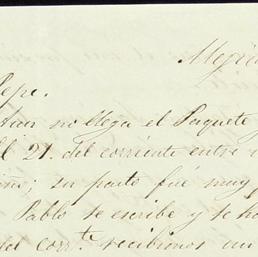 Pepe.
Aun no llega el Paquete
El 21. del corriente entre
su parto fué muy
Pablo te escribe y te
del corr.te recibimos un